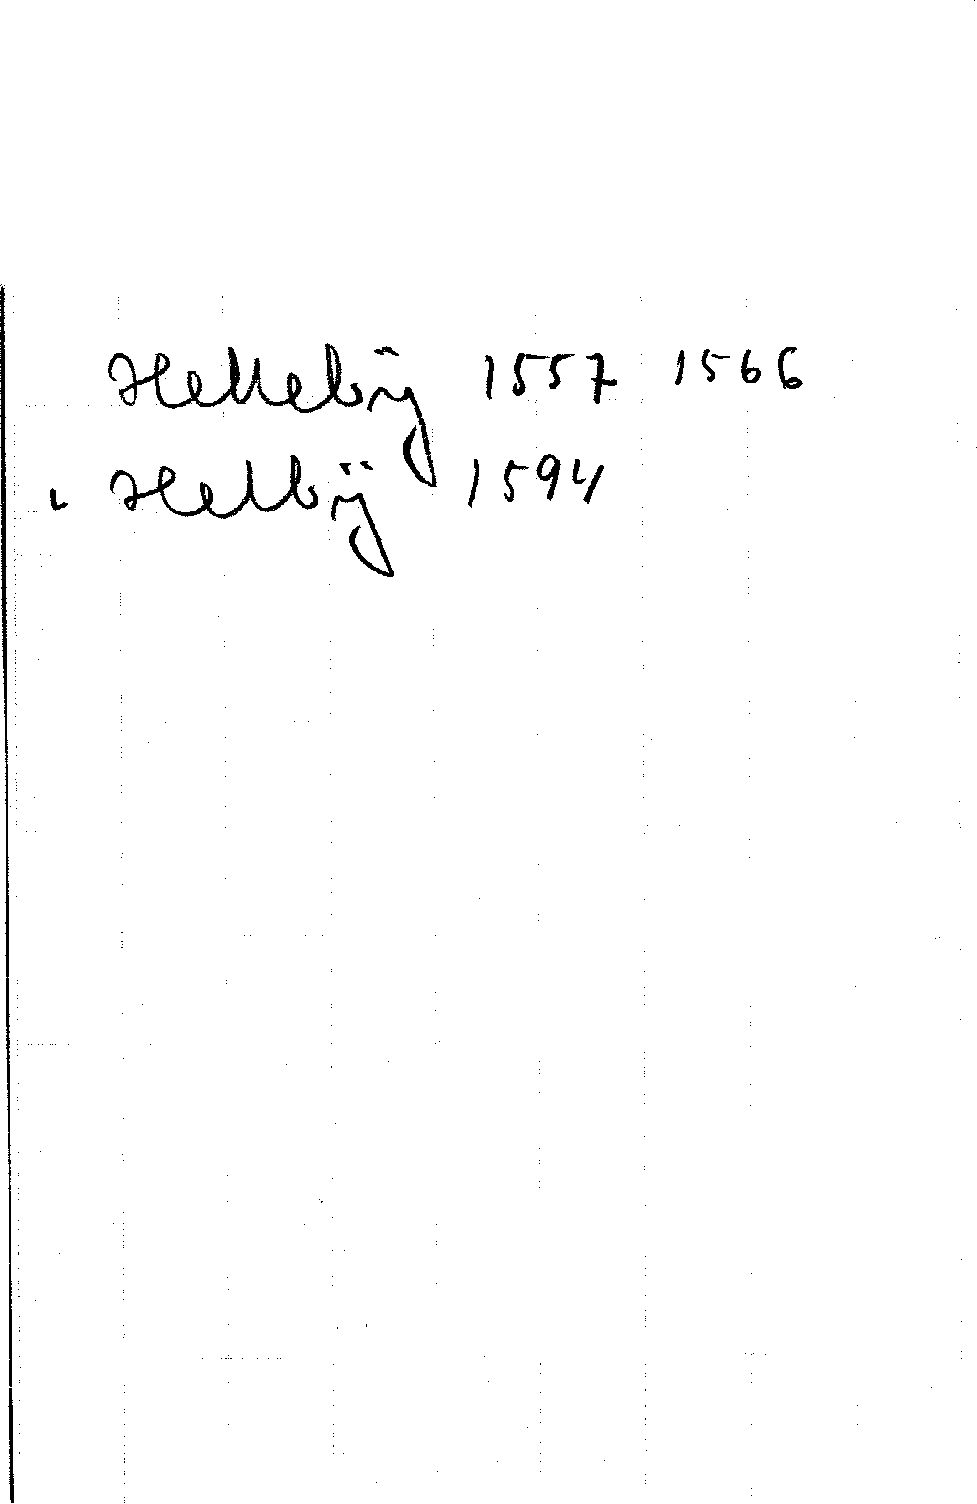 Helleby̎ 1557 1566
Helbÿ 1594